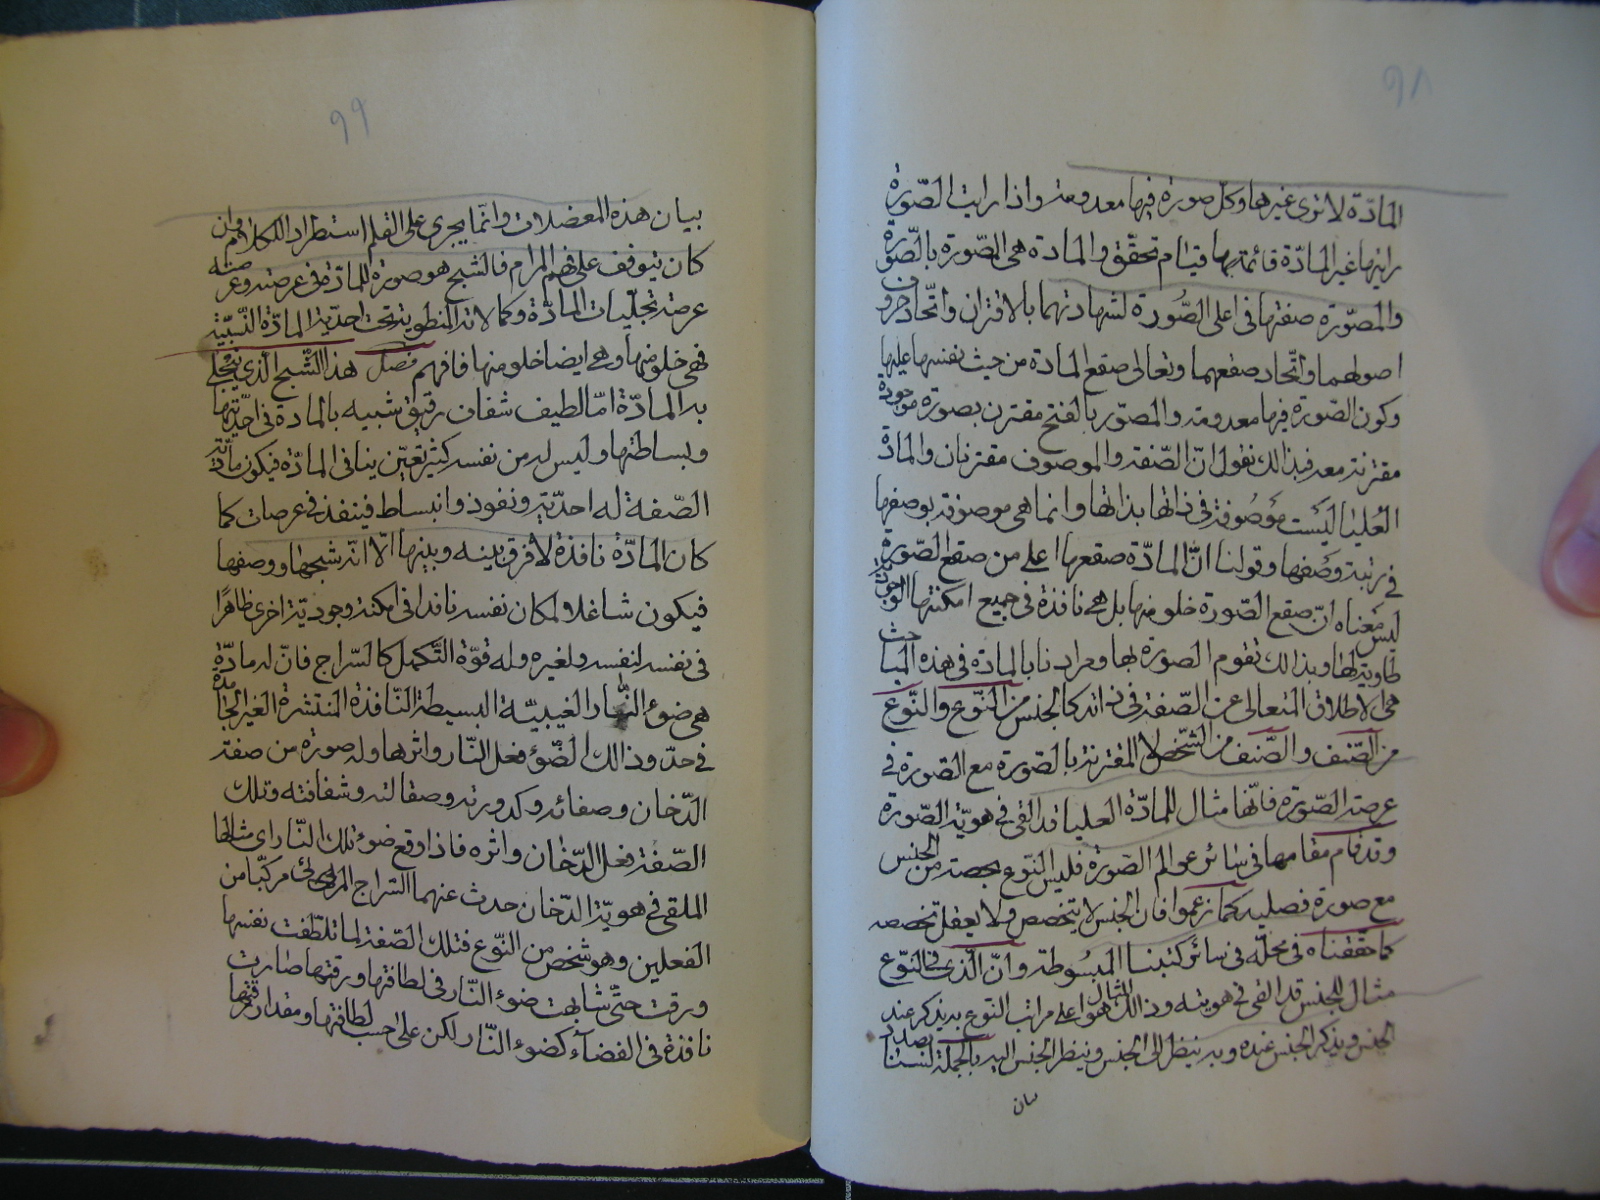 ٩٨
المادّة لا نرى غيرها وكلّ صورة فيها معدومة واذا رايت الصّورة
رايتها غير المادّة قائمة بها قيام تحقّق والمادة هى الصّورة بالصّورة
والمصوّرة صفتها فى اعلى الصُّورة لشهادتهما بالاقتران واتّحاد حروف
اصولهما واتّحاد صقعهما وتعالى صقع المادة من حيث نفسها عليها
وكون الصّورة فيها معدومة والمصوّر بالفتح مقترن بصورة موجودة
مقترنة معه فبذالك نقول انّ الصّفة والموصوف مقترنان والمادّة
العُليا لَيست مَوصُوفة فى ذاتها بذاتها وانما هى موصوفة بوصفها
فى رتبة وَصفها وقولنا انَّ المادّة صقعها اعلى من صقع الصّورة
ليس مَعناه انّ صقع الصّورة خلو منها بل هى نافذة فى جميع امكنتها الوجودية
طاوية لها وبذالك تقوم الصورة بها ومرادنا بالمادّة فى هذه المباحث
هى الاطلاق المتعالى عن الصّفة فى ذاته كالجنس من النّوع والنّوع
من الصّنف والصّنف من الشّخص لا المقترنة بالصّورة مع الصّورة فى
عرصة الصّورة فانّها مثال للمادّة العليا قد القى فى هويّة الصّورة
وقد قام مقامها فى سائر عوالم الصّورة فليس النّوع بحصة من الجنس
مع صورة فصلية كما زعموا فان الجنس لا يتخصص ولا يعقل تخصصه
كما حققناه فى محلّه فى سائر كتبنا المبسُوطة وانّ الّذى فى النّوع
مثال للجنس قد القى فى هويته وذالك المثال هو اعلى مراتب النّوع به يذكر عند
الجنس ويذكر الجنس عنده وبه ينظر الى الجنس وينظر الجنس اليه بالجملة لسنا بصدد
بيان
٩٩
بيان هذه المعضلات وانّما يجرى على القلم استطراد الكلام وان
كان يتوقف على فهم المرام فالشبح هو صورة للمادّة فى عرصته وعرصته
عرصة تجلّيات المادّة وكمالاته المنطوية تحت احديّة المادّة النّسبيّة
فهى خلو منها وهى ايضا خلو منها فافهم فصل هذا الشّبح الّذى يتجلّى
به المادّة امّا لطيف شفاف رقيق شبيه بالمادة فى احديّتها
وبساطتها وليس له من نفسه كثير تعيّن ينافى المادّة فيكون مادّة
الصّفة له احديّة ونفوذ وانبساط فينفذ فى عرصات كما
كان المادّة نافذة لا فرق بينه وبينها الّا انّه شبحها ووصفها
فيكون شاغلا لمكان نفسه نافدا فى امكنة وجوديّة اخرى ظاهرًا
فى نفسه لنفسه ولغيره وله قوّة التّكمل كالسّراج فانّ له مادّة
هى ضوء النّار الغيبيّة البسيطة النّافذة المنتشرة الغير الجامدة
فى حدّ وذالك الضّوء فعل النّار واثرها وله صورة من صفة
الدّخان وصفائه وكدورته وصقالته وشفافته وتلك
الصّفة فعل الدّخان واثره فاذا وقع ضوء تلك النّار اى مثالها
الملقى فى هويّة الدّخان حدث عنهما السّراج المرئى مركّبا من
الفعلين وهو شخص من النّوع فتلك الصّفة لما تلطّفت نفسها
ورقت حتّى شابهت ضوء النّار فى لطافتها ورقتها صارت
نافذة فى الفضآء كضوء النّار لكن على حسب لطافتها ومقدار رقتها